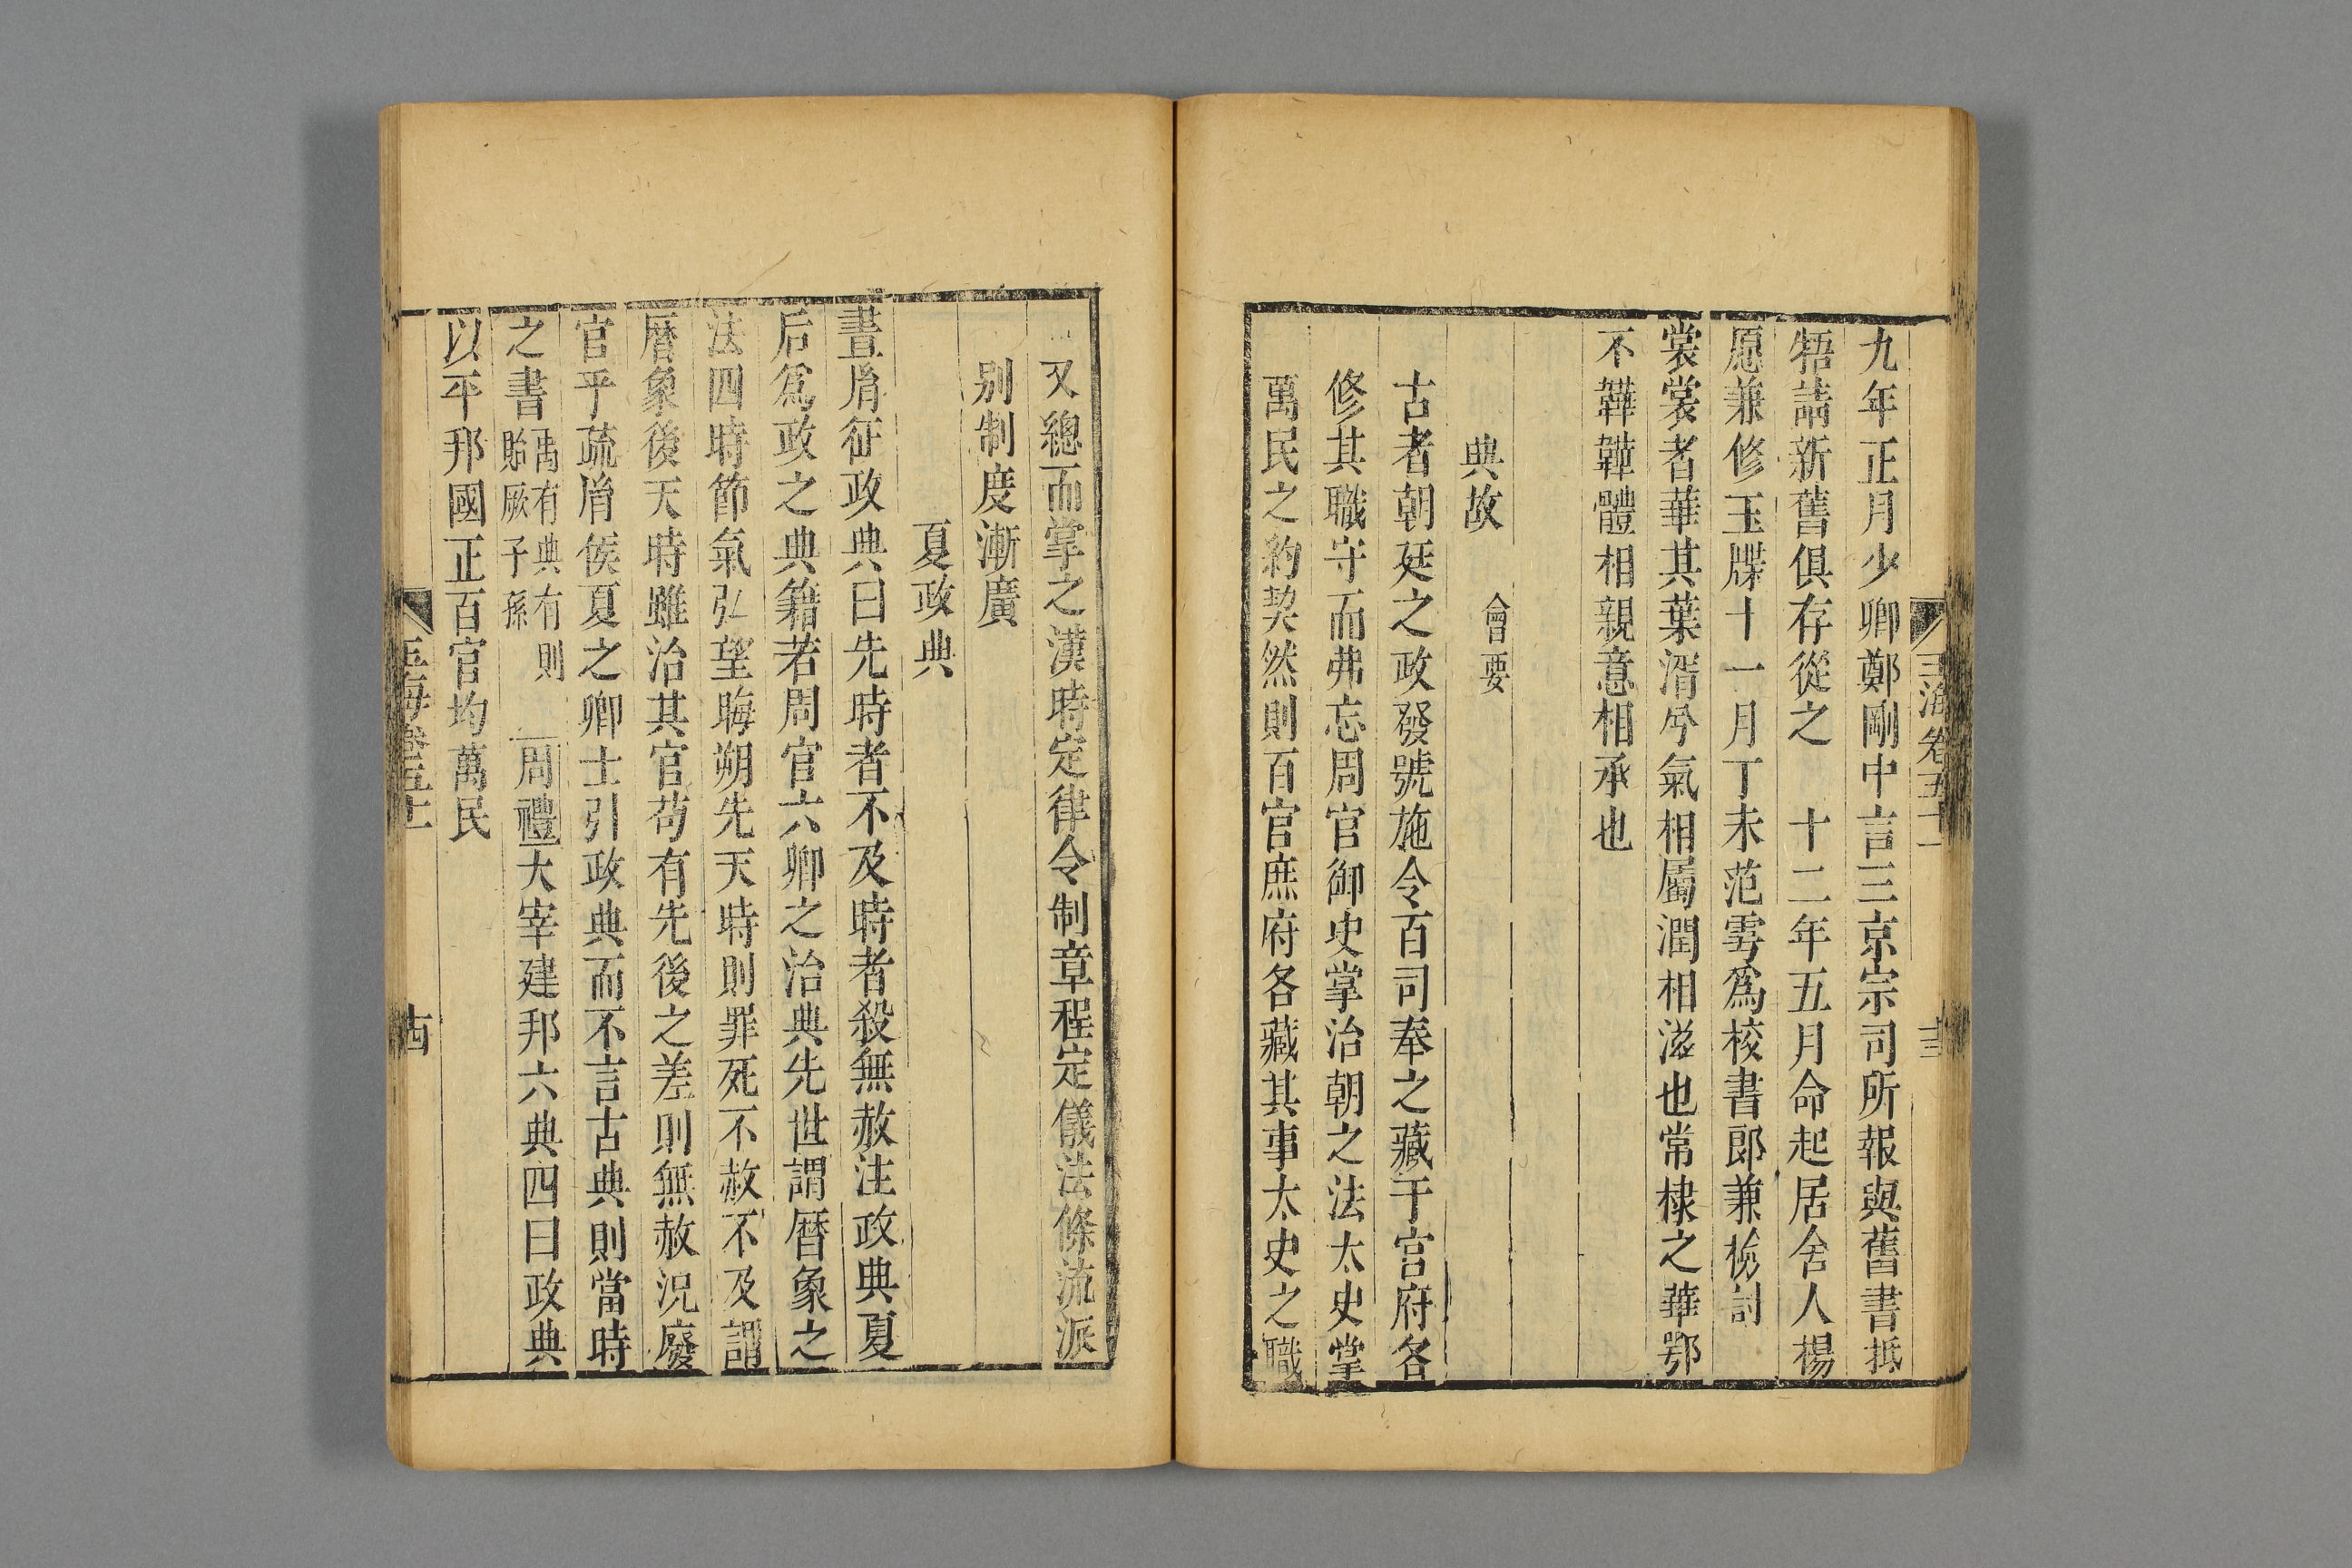 玉海卷五十一
九年正月少卿鄭剛中言三京宗司所報與舊書抵
牾請新舊俱存從之　十二年五月命起居舍人楊
愿兼修玉牒十一月丁未范雩爲校書郎兼檢討
裳裳者華其葉湑兮氣相屬潤相滋也常棣之華鄂
不韡韡體相親意相承也
典故　會要
古者朝廷之政發號施令百司奉之藏于官府各
修其職守而弗忘周官御史掌治朝之法太史掌
萬民之約契然則百官庶府各藏其事太史之職
又總而掌之漢時定律令制章程定儀法條流派
别制度漸廣
夏政典
書胤征政典曰先時者不及時者殺無赦注政典夏
后爲政之典籍若周官六卿之治典先世謂曆象之
法四時節氣弘望晦朔先天時則罪死不赦不及謂
曆象後天時雖治其官苟有先後之差則無赦況廢
官乎疏胤侯夏之卿士引政典而不言古典則當時
之書禹有典有則貽厥子孫　周禮大宰建邦六典四曰政典
以平邦國正百官均萬民
玉海卷五十一